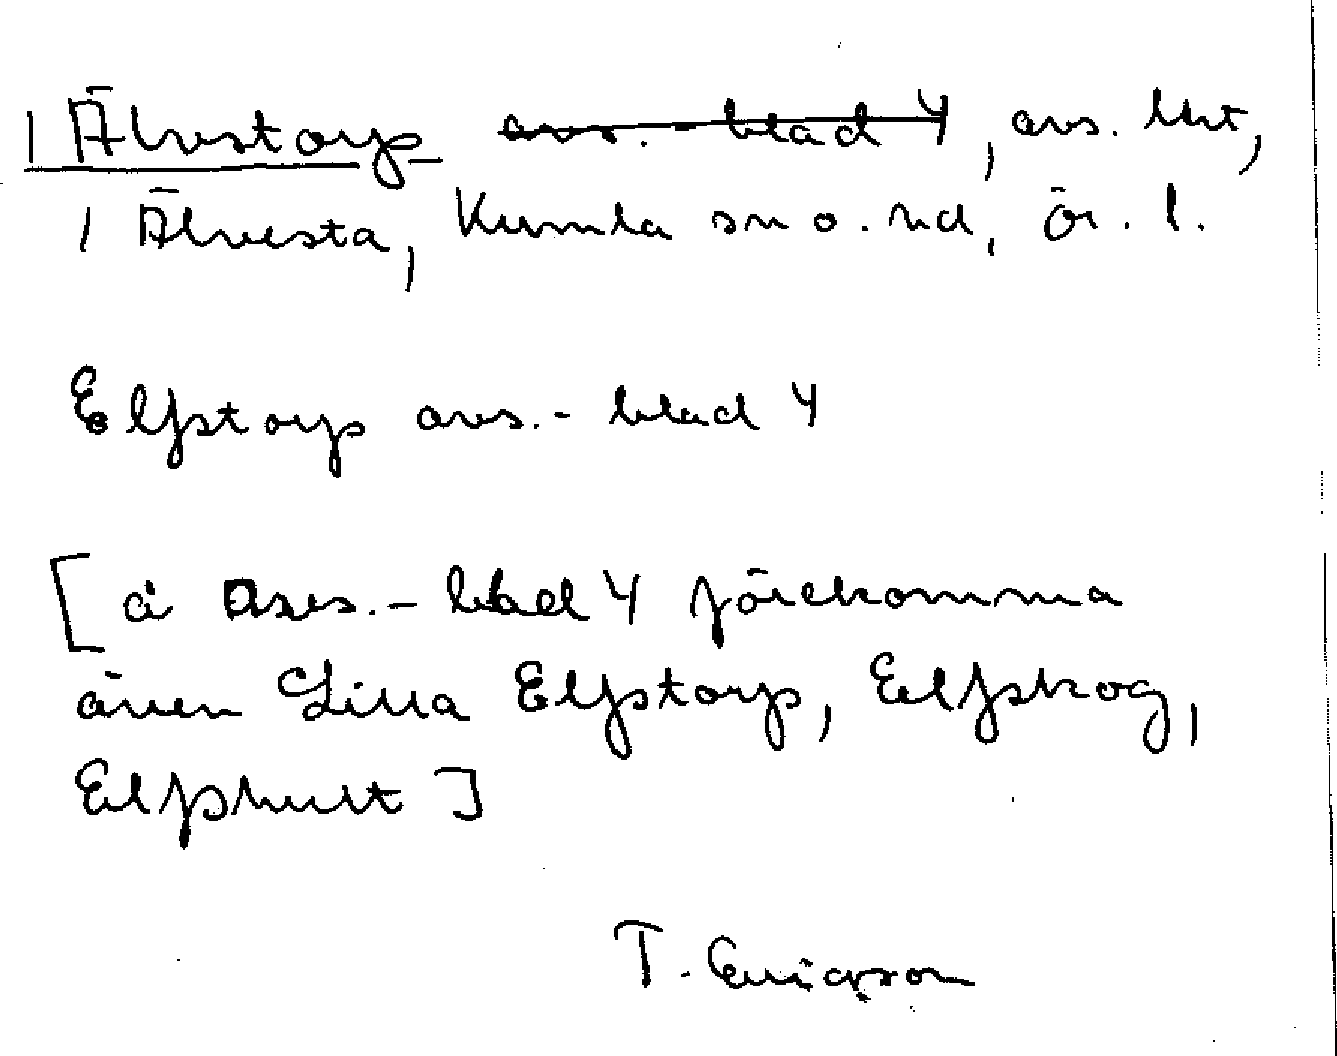 | Älvstorp ~~avs.-blad 4~~, avs. lht,
| Älvesta, Kumla sn o. hd, ör. l.
Elfstorp avs.-blad 4
[å avs.-blad 4 förekomma
även Lilla Elfstorp, Elfskog,
Elfshult]
T. Ericson